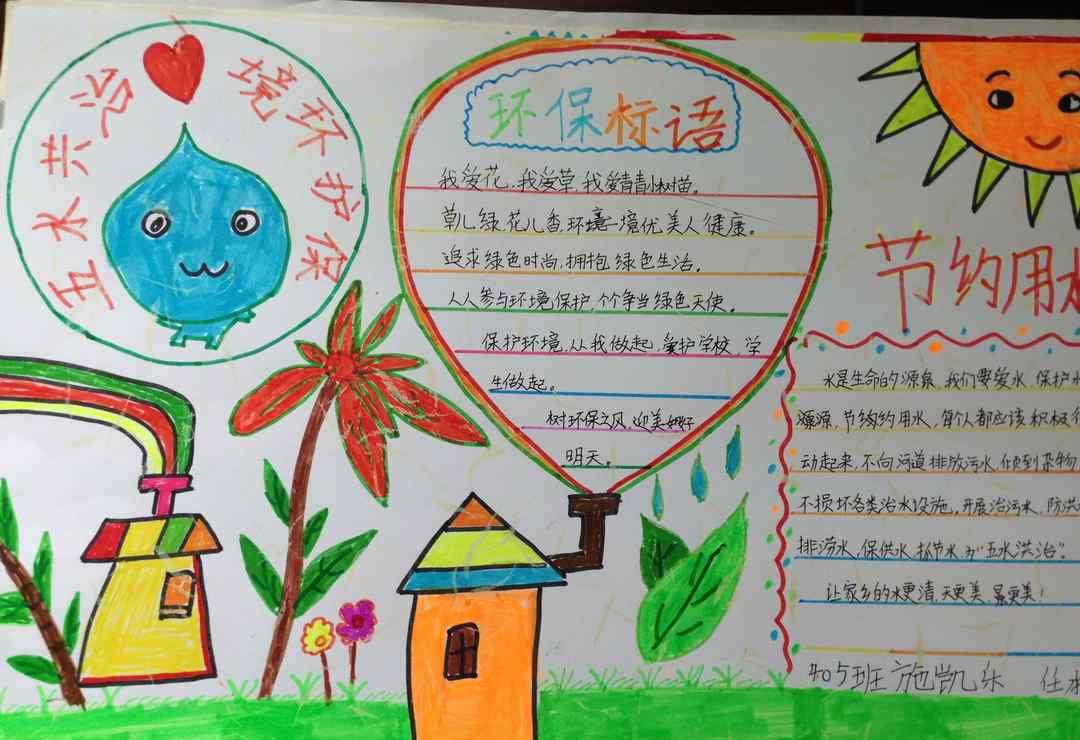 五水共治
境环护保
环保标语
我爱花，我爱草，我爱青青小树苗。
草儿绿，花儿香，环境优美人健康。
追求绿色时尚，拥抱绿色生活。
人人参与环境保护，个个争当绿色天使。
保护环境，从我做起，爱护学校，学
生做起。
树环保之风，迎美好
明天。
节约用水
水是生命的源泉，我们要爱水、保护水
源，节约用水，每个人都应该积极行
动起来，不向河道排放污水、倾到杂物，
不损坏各类治水设施，开展治污水、防洪
排涝水、保供水、抓节水的"五水洪治"。
让家乡的水更清，天更美，景更美！
405班 施凯乐